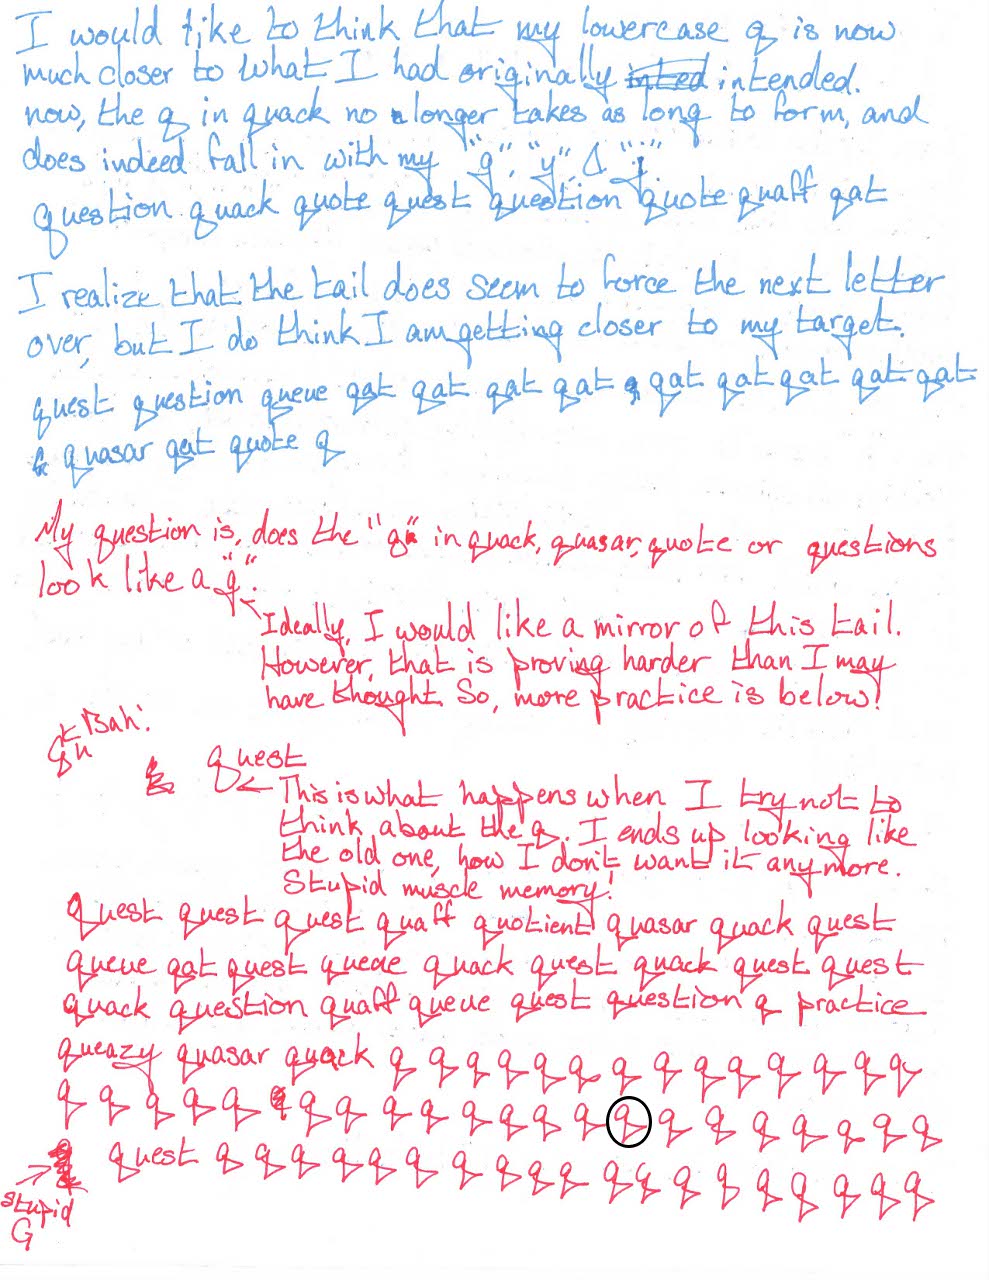 I would like to think that my lowercase q is now
much closer to what I had originally inted intended.
now, the q in quack no longer takes as long to form, and
does indeed fall in with my "g", "y", & "j"
question quack quote quest question quote quaff qat
I realize that the tail does seem to force the next letter
over, but I do think I am getting closer to my target.
quest question queue qat qat qat qat qat qat qat qat qat
& quasar qat quote q
My question is, does the "q" in quack, quasar, quote or questions
look like a "g".
Ideally, I would like a mirror of this tail.
However, that is proving harder than I may
have thought. So, more practice is below!
Bah!
qu
quest
This is what happens when I try not to
think about the q. I ends up looking like
the old one, how I don't want it anymore.
Stupid muscle memory!
quest quest quest quaff quotient quasar quack quest
queue qat quest queue quack quest quack quest quest
quack question quaff queue quest question q practice
queazy quasar quack q q q q q q q q q q q q q q
q q q q q q q q q q q q q q q q q q q q q q
quest q q q q q q q q q q q q q q q q q q q
stupid
G